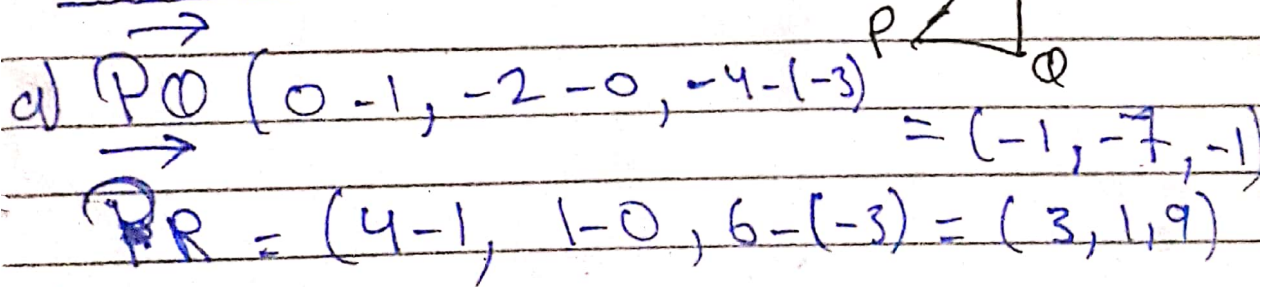 P
Q
a) PQ (0-1, -2-0, -4-(-3)
= (-1, -7, -1)
PR = (4-1, 1-0, 6-(-3) = (3, 1, 9)